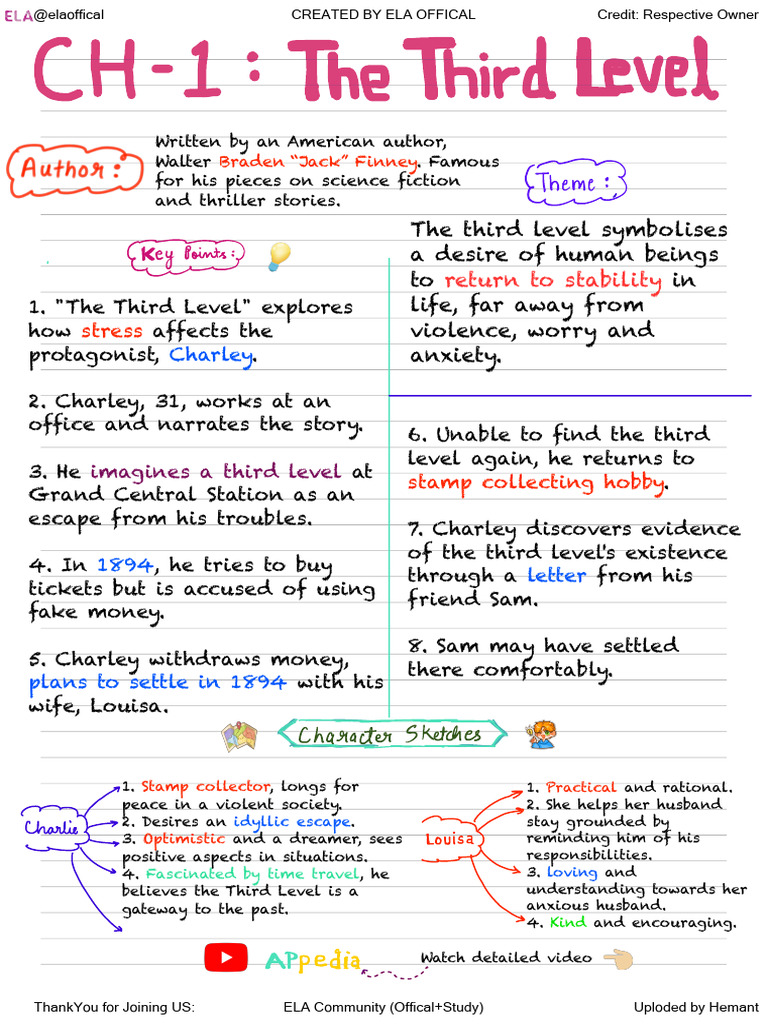 ELA@elaoffical
CREATED BY ELA OFFICAL
Credit: Respective Owner
CH-1: The Third Level
Author:
Written by an American author,
Walter Braden “Jack” Finney. Famous
for his pieces on science fiction
and thriller stories.
Theme:
The third level symbolises
a desire of human beings
to return to stability in
life, far away from
violence, worry and
anxiety.
Key Points:
1. "The Third Level" explores
how stress affects the
protagonist, Charley.
2. Charley, 31, works at an
office and narrates the story.
3. He imagines a third level at
Grand Central Station as an
escape from his troubles.
4. In 1894, he tries to buy
tickets but is accused of using
fake money.
5. Charley withdraws money,
plans to settle in 1894 with his
wife, Louisa.
6. Unable to find the third
level again, he returns to
stamp collecting hobby.
7. Charley discovers evidence
of the third level's existence
through a letter from his
friend Sam.
8. Sam may have settled
there comfortably.
Character Sketches
Charlie
1. Stamp collector, longs for
peace in a violent society.
2. Desires an idyllic escape.
3. Optimistic and a dreamer, sees
positive aspects in situations.
4. Fascinated by time travel, he
believes the Third Level is a
gateway to the past.
Louisa
1. Practical and rational.
2. She helps her husband
stay grounded by
reminding him of his
responsibilities.
3. loving and
understanding towards her
anxious husband.
4. Kind and encouraging.
APpedia
Watch detailed video
ThankYou for Joining US:
ELA Community (Offical+Study)
Uploded by Hemant